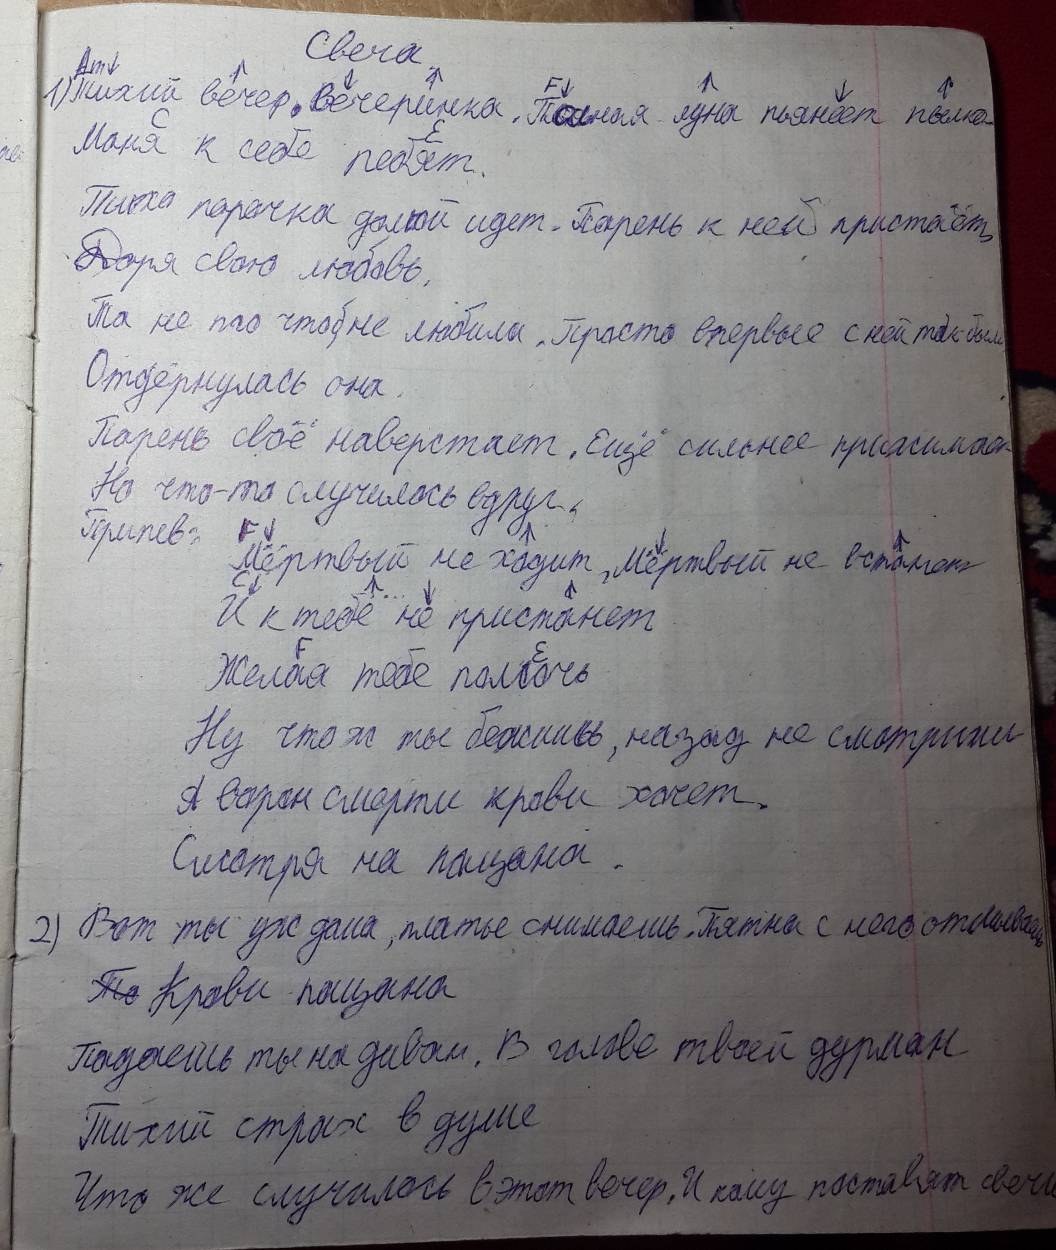 Свеча
Am↓ ↑ ↓ ↑ F↓ ↑ ↓ ↑
1) Тихий вечер, вечеринка. Полная луна пьянеет пылко
C E
Маня к себе ребят.
Тихо парочка домой идет. Парень к ней пристаёт,
Даря свою любовь,
Та не то чтоб не любила. Просто впервые с ней так было
Отдёрнулась она.
Парень своё наверстает. Ещё сильнее прижимает
Но что-то случилось вдруг.
Припев:
F↓ ↑ ↓ ↑
Мёртвый не ходит, Мёртвый не встанет
C↓ ↑... ↓ ↑
И к тебе не пристанет
F E
Желая тебе помочь
Ну что ж ты бежишь, назад не смотришь
А ворон смерти крови хочет.
Смотря на пацана.
2) Вот ты уж дома, платье снимаешь. Пятна с него отмываешь
Крови пацана
Падаешь ты на диван. В голове твоей дурман
Тихий страх в душе
Что же случилось в этот вечер, И кому поставят свечи